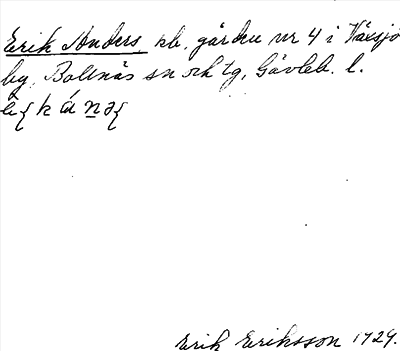 Erik Anders pb. gården nr 4 i Växsjö
by, Bollnäs sn och tg, Gävleb. l.
Erik Eriksson 1929.